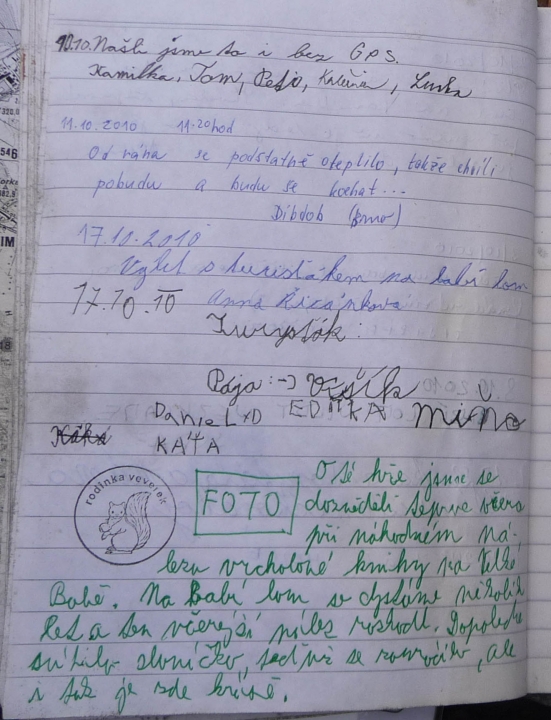 10.10. Našli jsme to i bez GPS.
Kamilka, Tom, Peťo, Lucka
11.10.2010 11:20hod
Od rána se podstatně oteplilo, takže chvíli
pobudu a budu se kochat...
Dibdob (Brno)
17.10.2010
Výlet s turisťákem na babí lom
17.10.10 Anna Říčánková
Turysťák:
Pája :-) Vašík
Daniel xD EDITKA Miňo
KAŤA
rodinka veverek
FOTO
O té hře jsme se
dozvěděli teprve včera
při náhodném ná-
lezu vrcholové knihy na Velké
Babě. Na Babí lom se chystáme několik
let a ten včerejší nález rozhodl. Dopoledne
svítilo sluníčko, teď už se zamračilo, ale
i tak je zde krásně.
546
IM